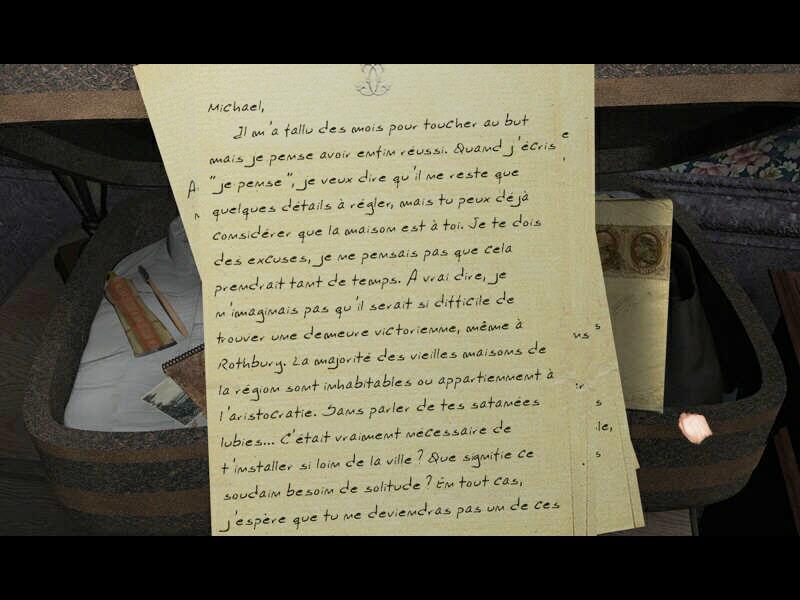 Michael,
Il m'a fallu des mois pour toucher au but
mais je pense avoir enfin réussi. Quand j'écris
"je pense", je veux dire qu'il ne reste que
quelques détails à régler, mais tu peux déjà
considérer que la maison est à toi. Je te dois
des excuses, je ne pensais pas que cela
prendrait tant de temps. A vrai dire, je
n'imaginais pas qu'il serait si difficile de
trouver une demeure victorienne, même à
Rothbury. La majorité des vieilles maisons de
la région sont inhabitables ou appartiennent à
l'aristocratie. Sans parler de tes satanées
lubies... C'était vraiment nécessaire de
t'installer si loin de la ville ? Que signifie ce
soudain besoin de solitude ? En tout cas,
j'espère que tu ne deviendras pas un de ces